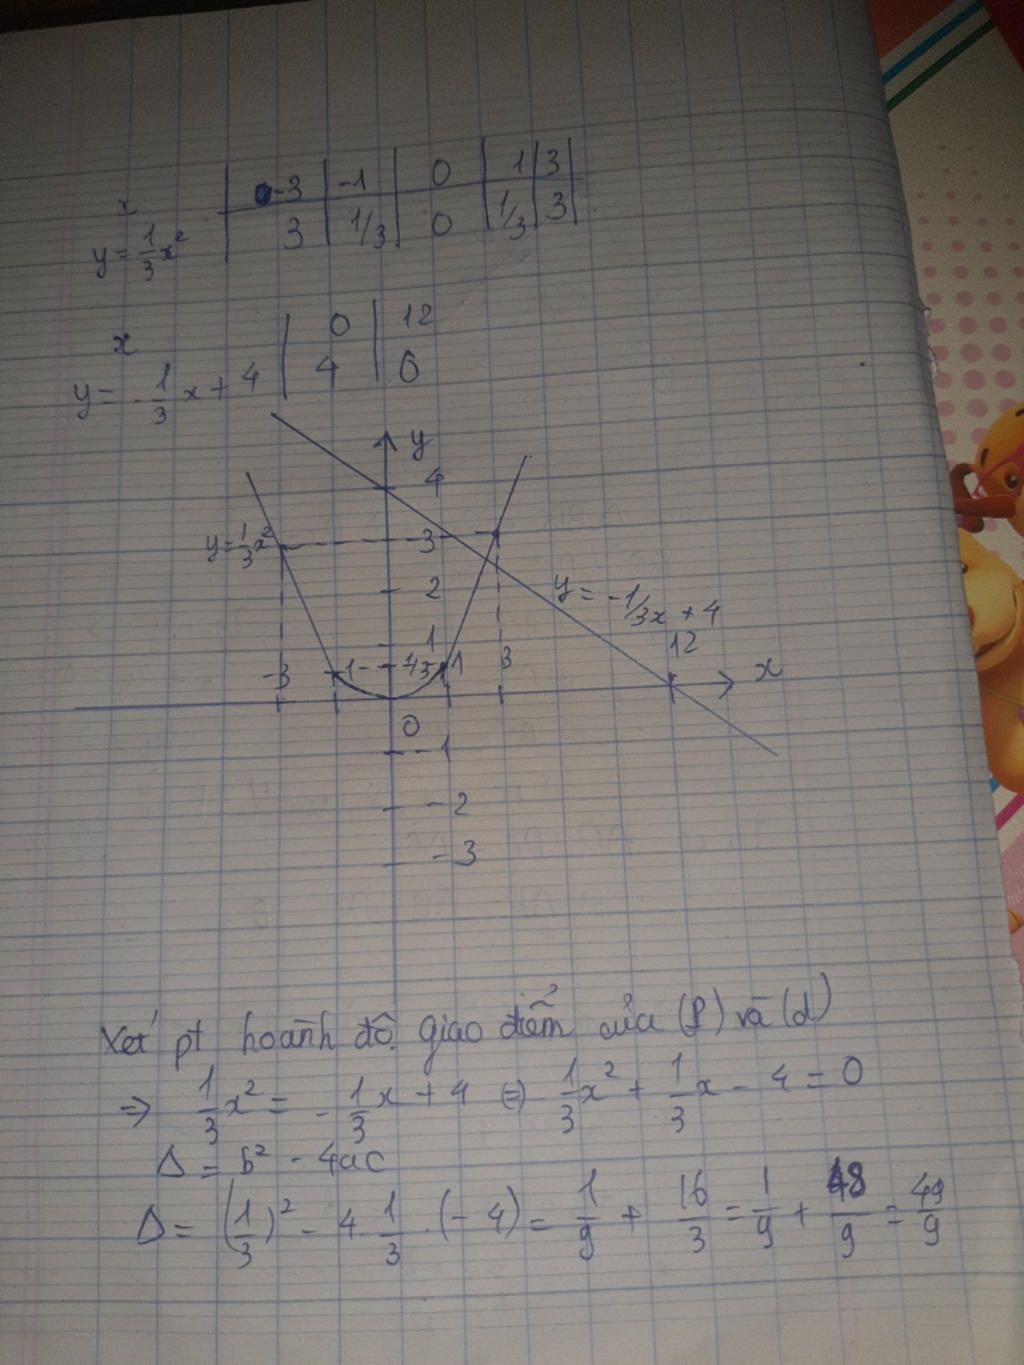 x -3 -1 0 1 3
y = 1/3 x² 3 1/3 0 1/3 3
x 0 12
y = -1/3 x + 4 4 0
y
4
y = 1/3 x² 3
2
y = -1/3x + 4
1
12
-3 -1 1/3 1 3 x
0
-1
-2
-3
Xét pt hoành độ giao điểm của (P) và (d)
=> 1/3 x² = - 1/3 x + 4 (=) 1/3 x² + 1/3 x - 4 = 0
Δ = b² - 4ac
Δ = (1/3)² - 4 . 1/3 . (-4) = 1/9 + 16/3 = 1/9 + 48/9 = 49/9